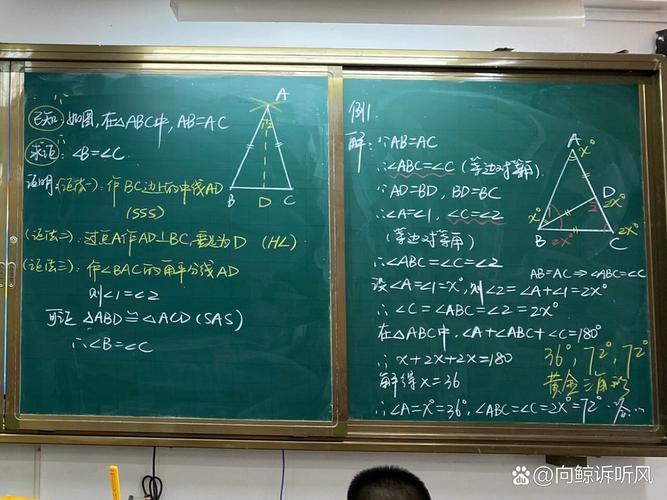 已知: 如图,在△ABC中, AB=AC
求证: ∠B=∠C
证明: (证法一): 作BC边上的中线AD
(SSS)
(证法二): 过点A作AD⊥BC,垂足为D (HL)
(证法三): 作∠BAC的角平分线AD
则∠1=∠2
可证 △ABD≌△ACD (SAS)
∴∠B=∠C
A
1 2
B D C
例1
解: ∵AB=AC
∴∠ABC=∠C (等边对等角)
∵AD=BD, BD=BC
∴∠A=∠1, ∠C=∠2
(等边对等角)
∴∠ABC=∠C=∠2
设∠A=∠1=x°,则∠2=∠A+∠1=2x°
∴∠C=∠ABC=∠2=2x°
在△ABC中, ∠A+∠ABC+∠C=180°
∴x+2x+2x=180
解得x=36
∴∠A=x°=36°, ∠ABC=∠C=2x°=72°
A
x°
D
2 2x°
x° 1
B 2x° C 2x°
AB=AC⇒∠ABC=∠C
36°, 72°, 72°
黄金三角形
答…
百家号@向鲸诉听风